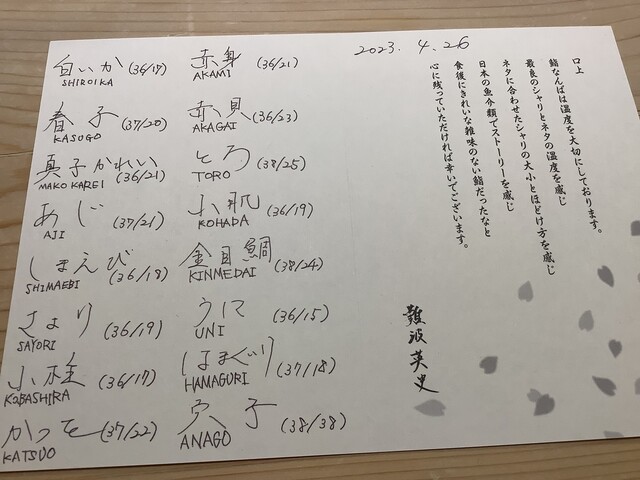 2023. 4. 26
口上
鮨なんばは温度を大切にしております。
最良のシャリとネタの温度を感じ
ネタに合わせたシャリの大小とほどけ方を感じ
日本の魚介類でストーリーを感じ
食後にきれいな雑味のない鮨だったなと
心に残っていただければ幸いでございます。
難波英史
白いか (36/17)
SHIROIKA
春子 (37/20)
KASUGO
真子かれい
MAKO KAREI (36/21)
あじ (37/21)
AJI
しまえび
SHIMAEBI (36/18)
さより (36/19)
SAYORI
小柱 (36/17)
KOBASHIRA
かつを (37/22)
KATSUO
赤身 (36/21)
AKAMI
赤貝 (36/23)
AKAGAI
とろ (38/25)
TORO
小肌 (36/19)
KOHADA
金目鯛 (38/24)
KINMEDAI
うに (36/15)
UNI
はまぐり (37/18)
HAMAGURI
穴子 (38/38)
ANAGO